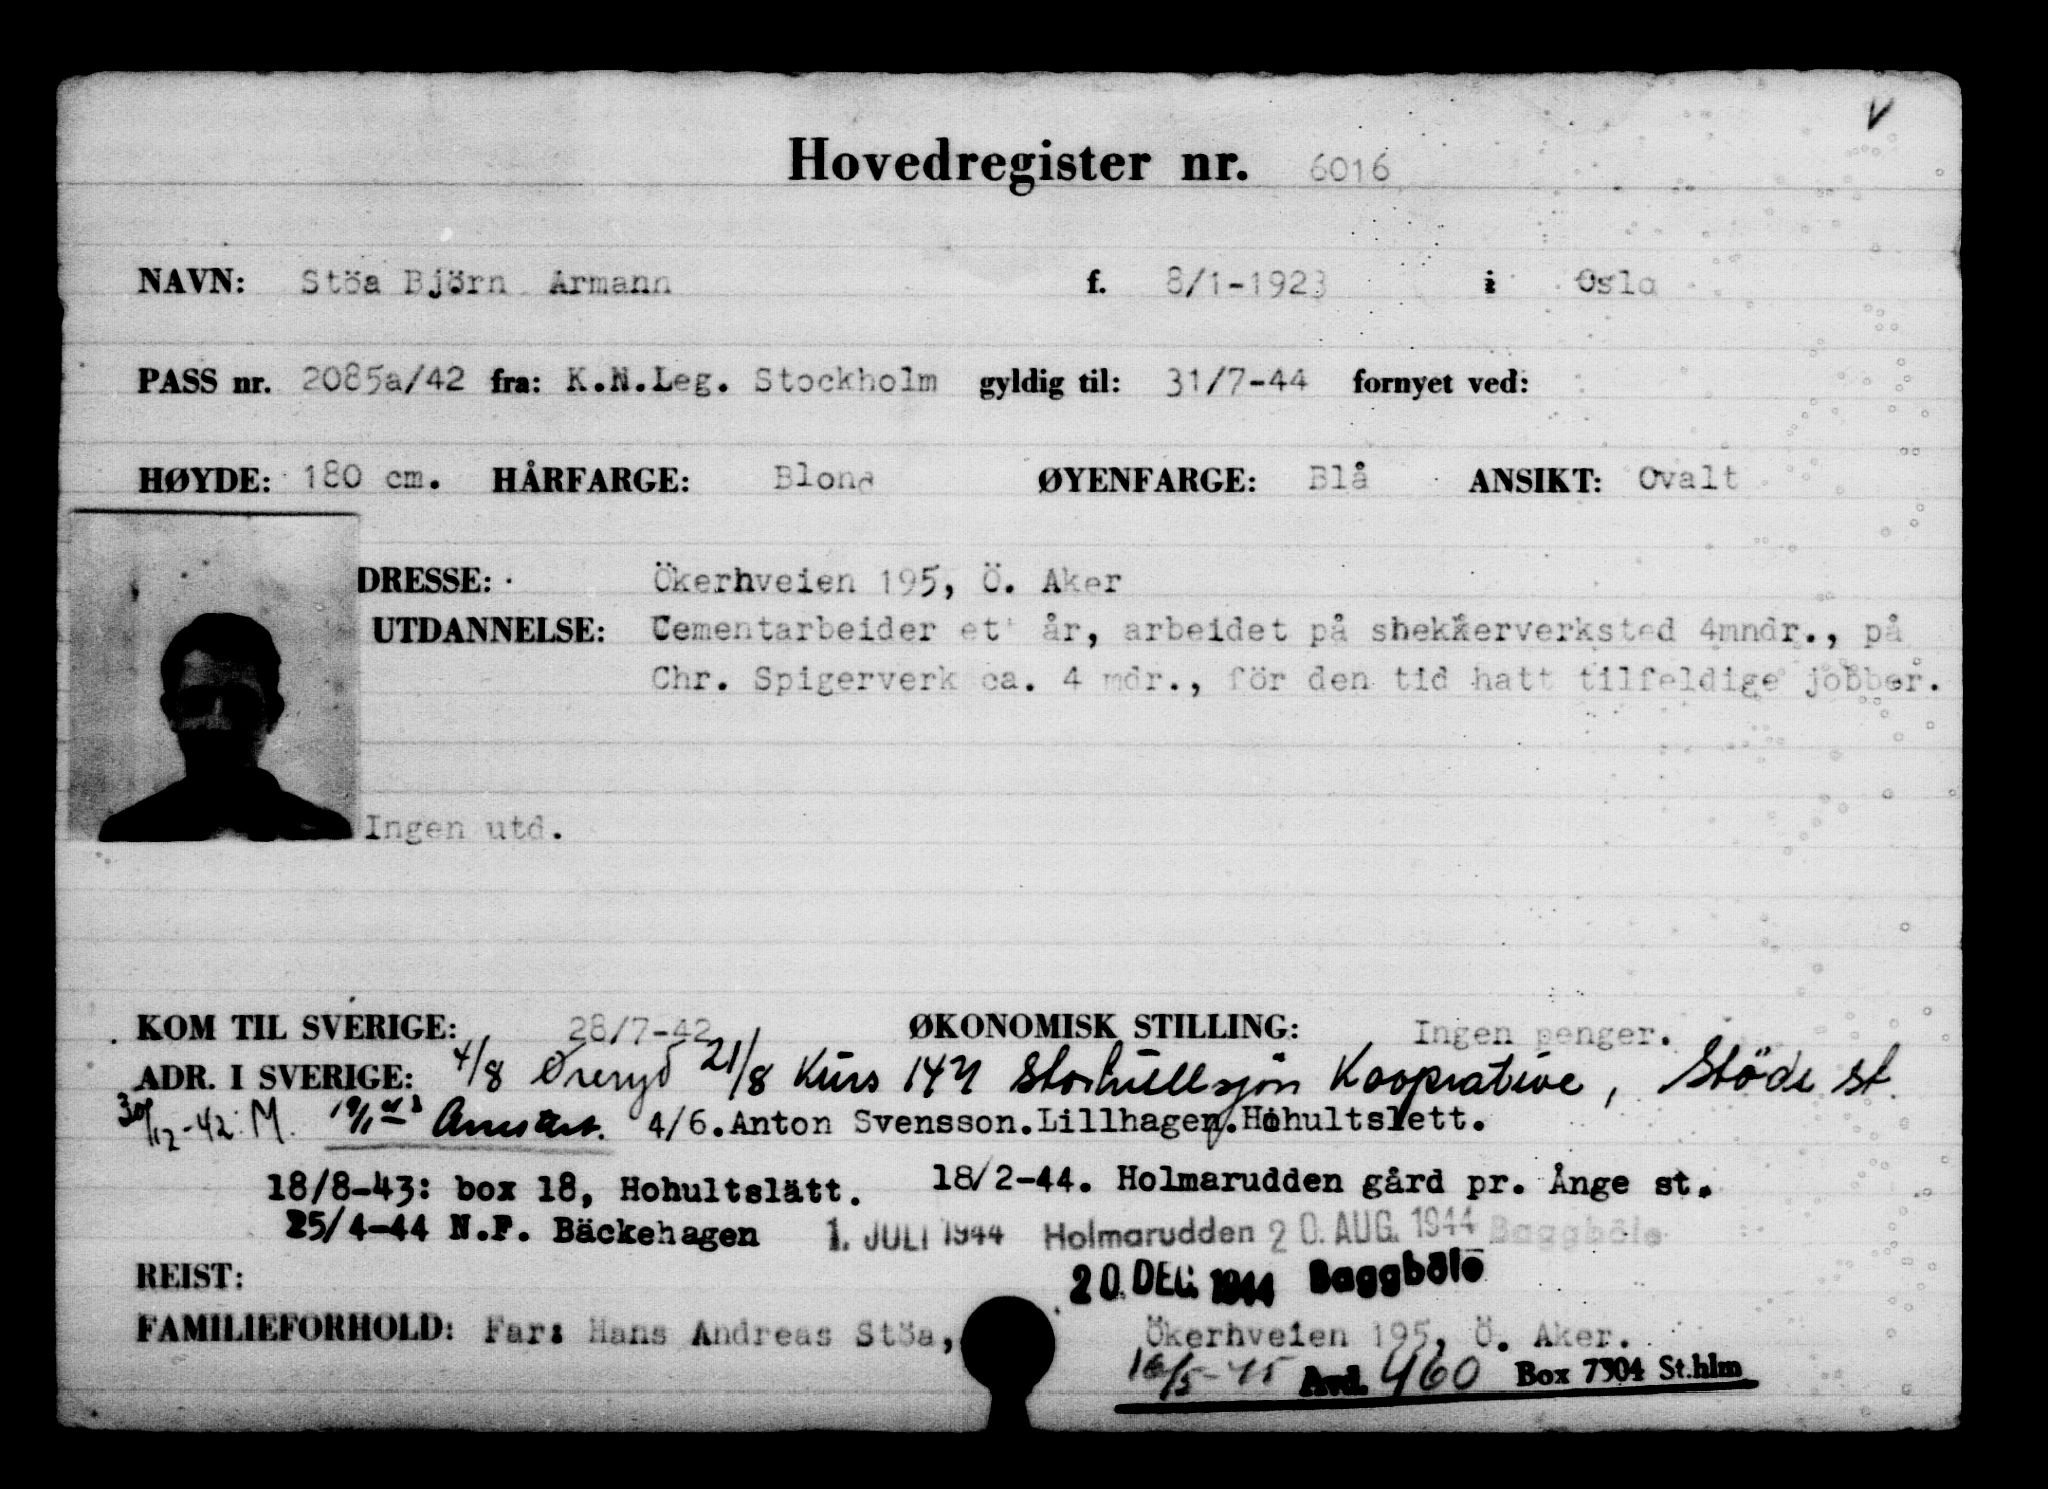 V
Hovedregister nr. 6016
NAVN: Stöa Björn Armann f. 8/1-1923 i Oslo
PASS nr. 2085a/42 fra: K.N.Leg. Stockholm gyldig til: 31/7-44 fornyet ved:
HØYDE: 180 cm. HÅRFARGE: Blond ØYENFARGE: Blå ANSIKT: Ovalt
DRESSE: Ökerhveien 195, Ö. Aker
UTDANNELSE: Cementarbeider et år, arbeidet på shekkerverksted 4mndr., på
Chr. Spigerverk ca. 4 mdr., för den tid hatt tilfeldige jobber.
Ingen utd.
KOM TIL SVERIGE: 28/7-42 ØKONOMISK STILLING: Ingen penger.
ADR. I SVERIGE: 4/8 Öreryd 21/8 Kurs 147 Storhullsjön Kooprative, Stöde st.
30/12-42. M. 4/6. Anton Svensson. Lillhagen. Hohultslett.
18/8-43: box 18, Hohultslätt. 18/2-44. Holmarudden gård pr. Ånge st.
25/4-44 N.F. Bäckehagen 1. JULI 1944 Holmarudden 20. AUG. 1944 Baggböle
REIST: 20. DEC. 1944 Baggböle
FAMILIEFORHOLD: Far: Hans Andreas Stöa, Ökerhveien 195, Ö. Aker.
16/5-45 Avd. 460 Box 7304 St.hlm